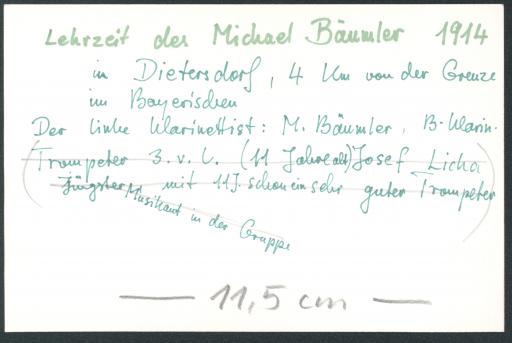 Lehrzeit des Michael Bäumler 1914
in Dietersdorf, 4 Km von der Grenze
im Bayerischen
Der linke Klarinettist: M. Bäumler, B-Klarin.
(Trompeter 3. v. l. (11 Jahre alt) Josef Licha
Jüngster mit 11 J. schon ein sehr guter Trompeter)
Musikant in der Gruppe
— 11,5 cm —